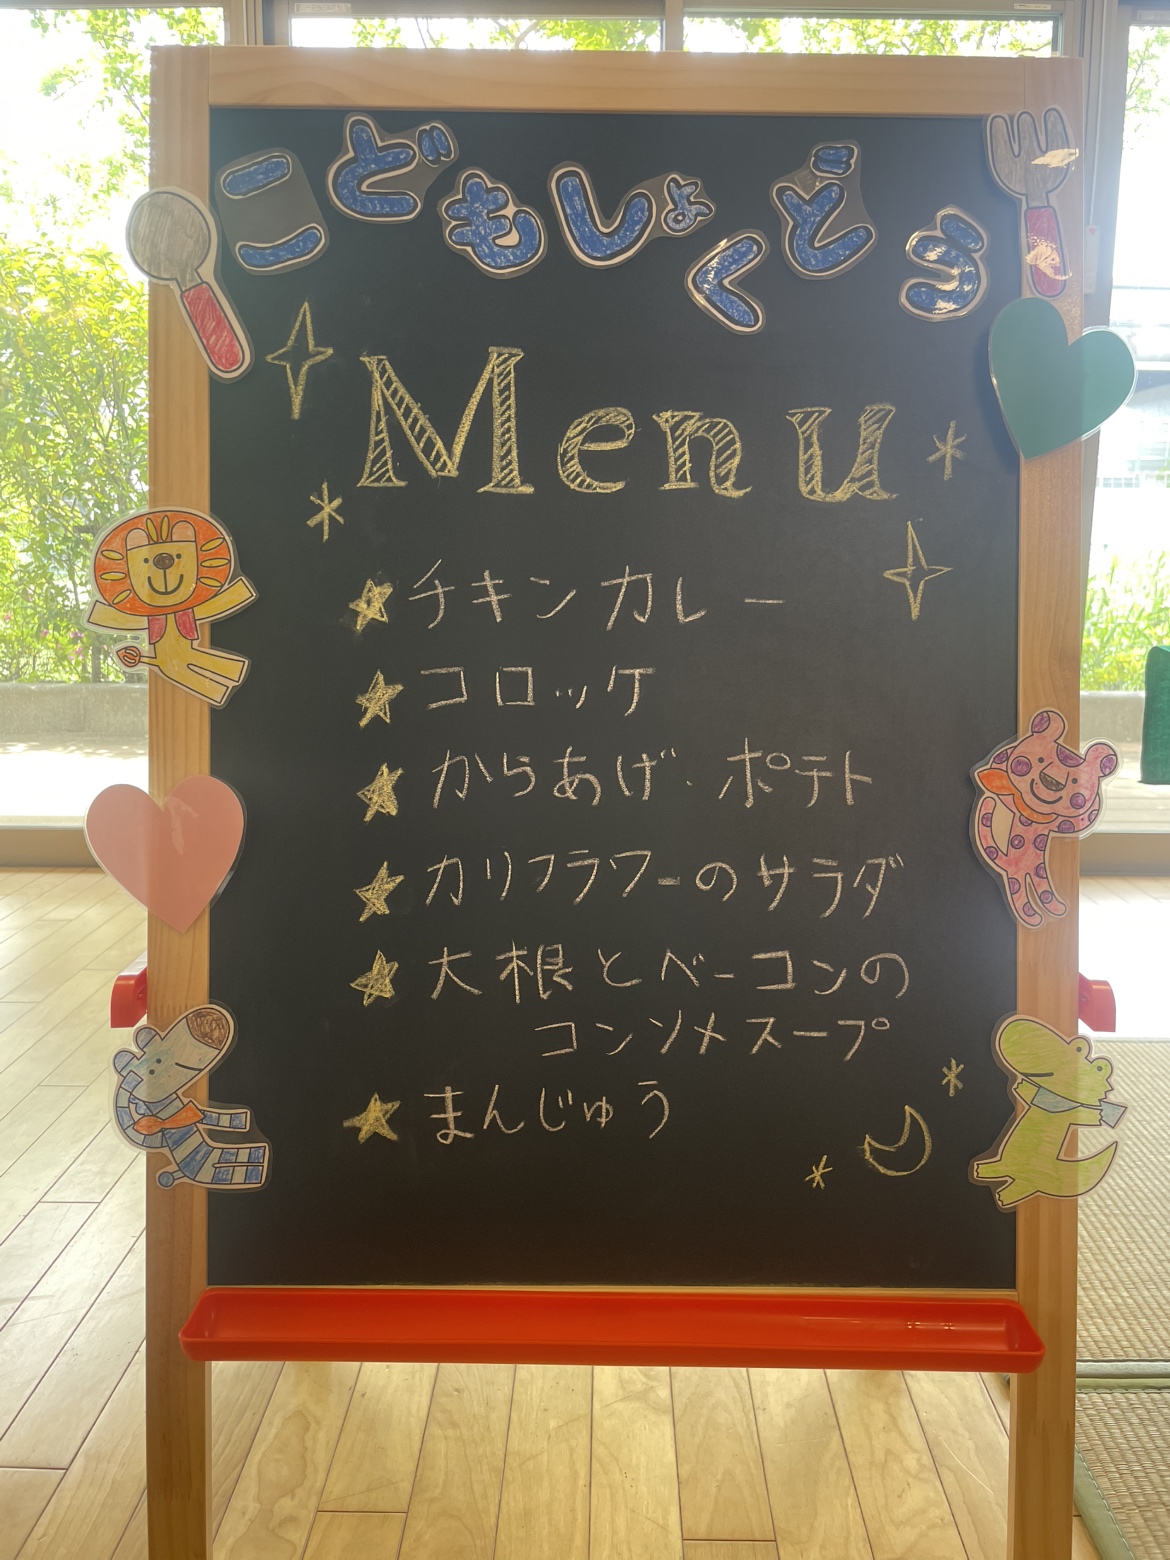 こどもしょくどう
Menu
★チキンカレー
★コロッケ
★からあげ・ポテト
★カリフラワーのサラダ
★大根とベーコンの
コンソメスープ
★まんじゅう